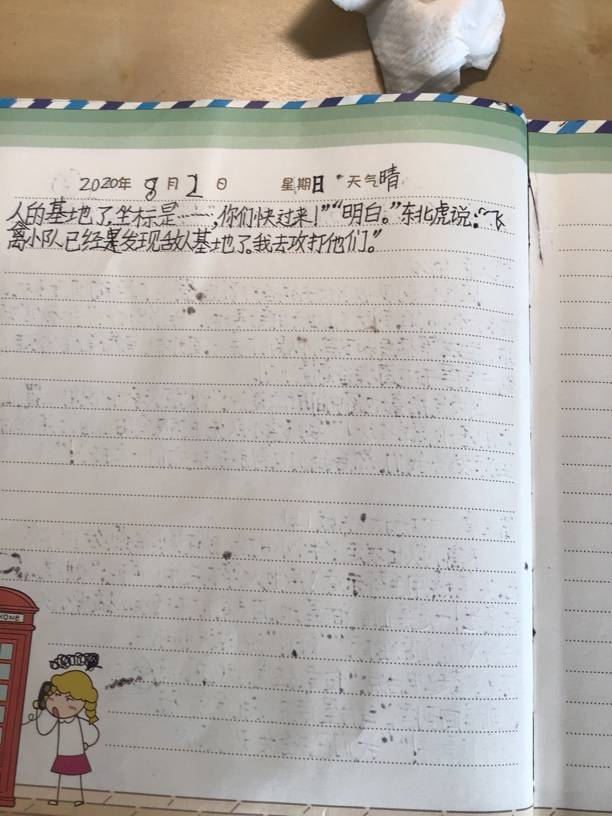 2020年 8月 2日 星期日 天气晴
人的基地了,坐标是……,你们快过来!”“明白。”东北虎说:“飞
禽小队已经是发现敌人基地了。我去攻打他们。”
HONE